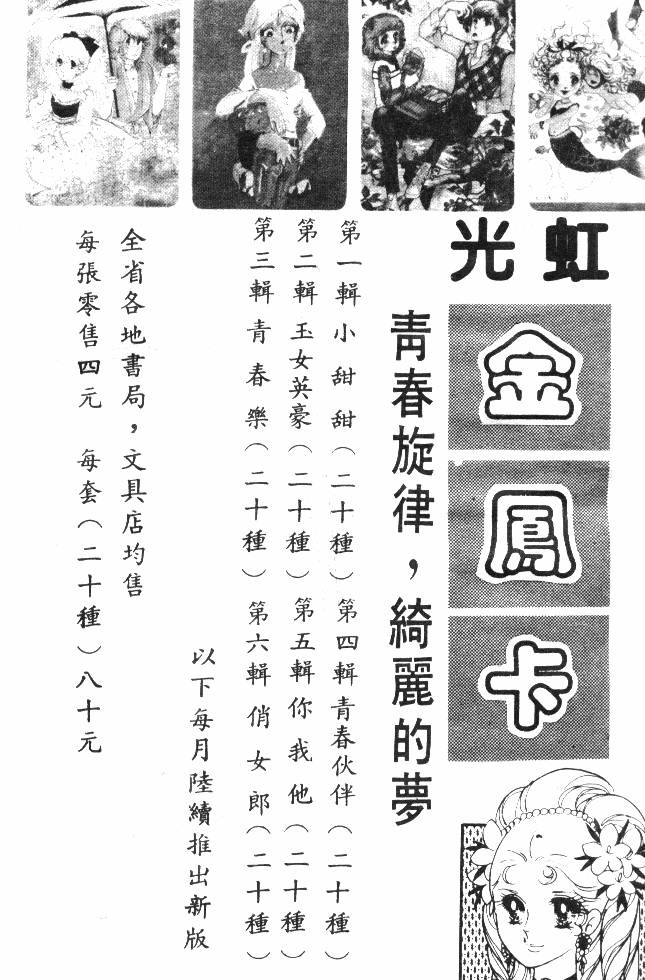 虹光
金鳳卡
青春旋律，綺麗的夢
第一輯小甜甜（二十種）第四輯青春伙伴（二十種）
第二輯玉女英豪（二十種）第五輯你我他（二十種）
第三輯青春樂（二十種）第六輯俏女郎（二十種）
以下每月陸續推出新版
全省各地書局，文具店均售
每張零售四元　每套（二十種）八十元